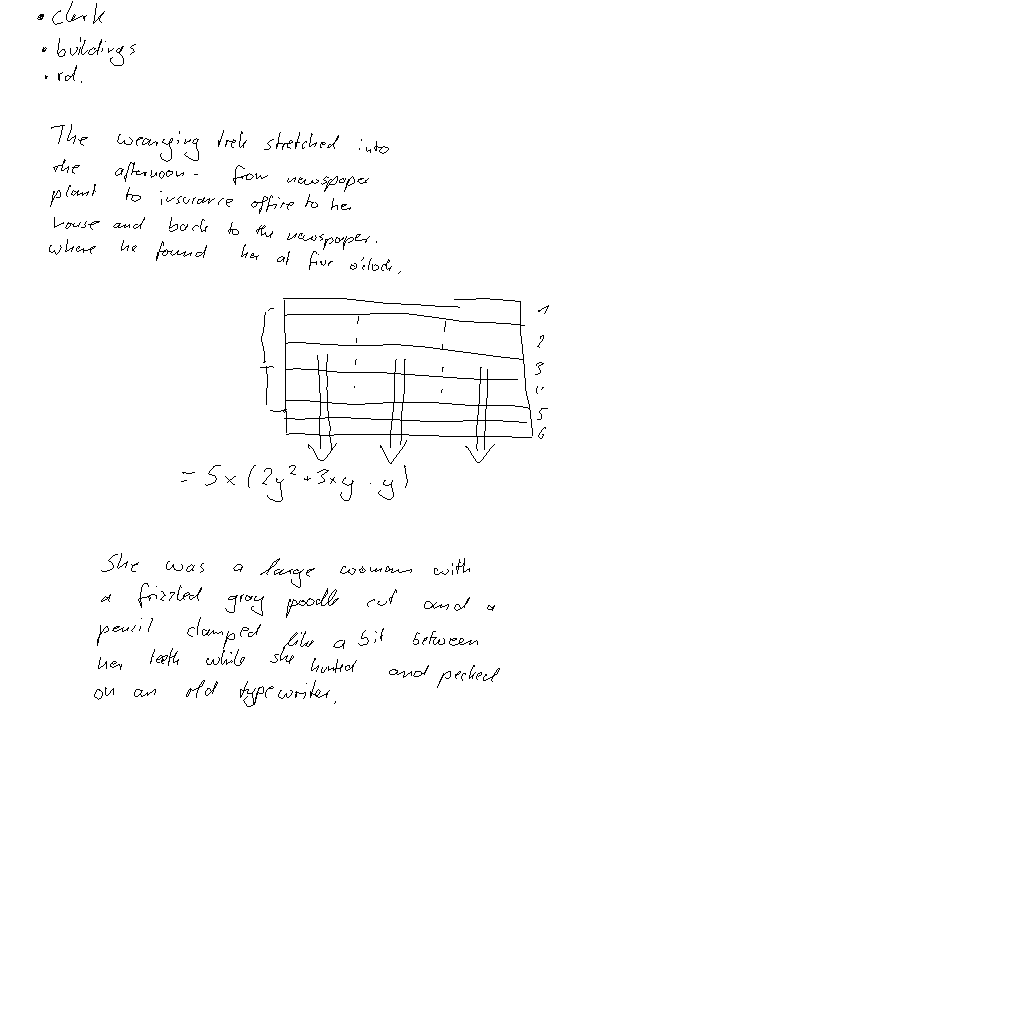 • clerk
• buildings
• rd.
The wearying trek stretched into
the afternoon - from newspaper
plant to insurance office to her
house and back to the newspaper.
where he found her at five o'clock.
1
2
3
4
5
6
= 5x (2y² + 3xy · y)
She was a large woman with
a frizzled gray poodle cut and a
pencil clamped like a bit between
her teeth while she hunted and pecked
on an old typewriter.